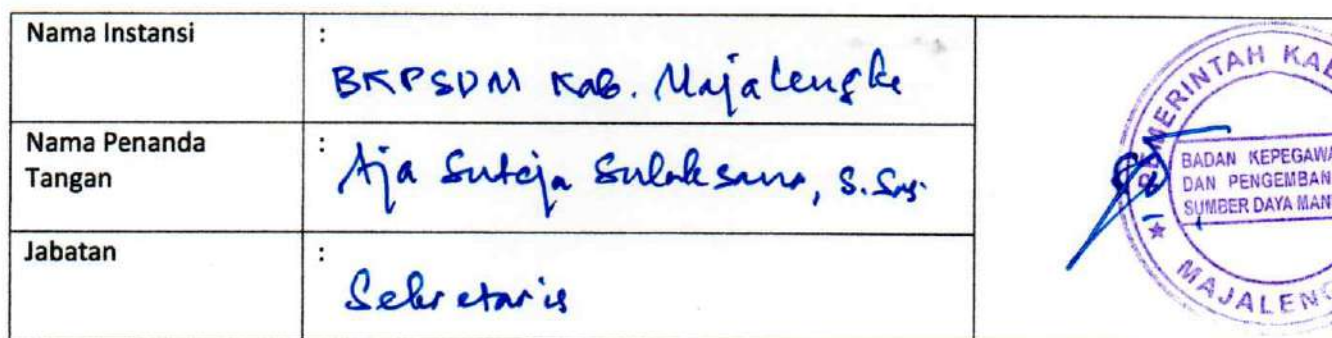 Nama Instansi
:
BKPSDM Kab. Majalengka
Nama Penanda
Tangan
:
Aja Suteja Sulaksana, S.Sos.
Jabatan
:
Sekretaris
PEMERINTAH KAB
BADAN KEPEGAWA
DAN PENGEMBAN
SUMBER DAYA MAN
MAJALENG